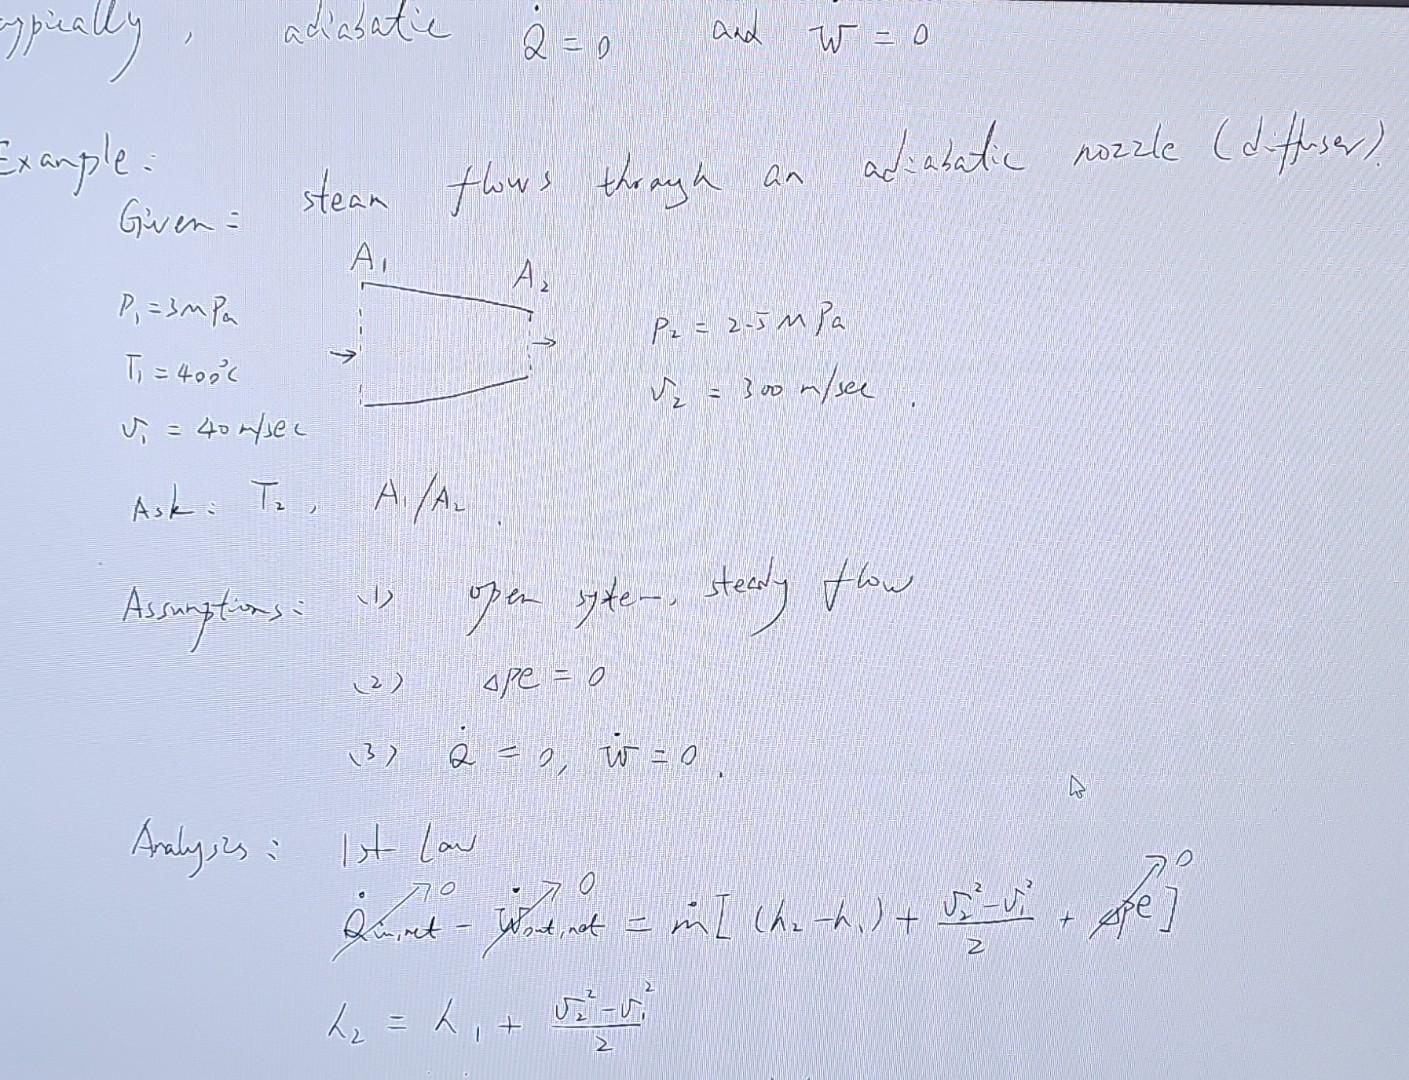 typically, adiabatic Q̇ = 0 and Ẇ = 0
Example:
Given: steam flows through an adiabatic nozzle (diffuser).
A₁ A₂
P₁ = 3 MPa
P₂ = 2.5 MPa
T₁ = 400°C
V₂ = 300 m/sec.
V₁ = 40 m/sec
Ask: T₂, A₁/A₂.
Assumptions: (1) open system, steady flow
(2) ΔPE = 0
(3) Q̇ = 0, Ẇ = 0.
Analyses: 1st Law
Q̇in,net ↗0 - Ẇout,net ↗0 = ṁ[(h₂ - h₁) + (V₂² - V₁²)/2 + Δpe ↗0]
h₂ = h₁ + (V₂² - V₁²)/2